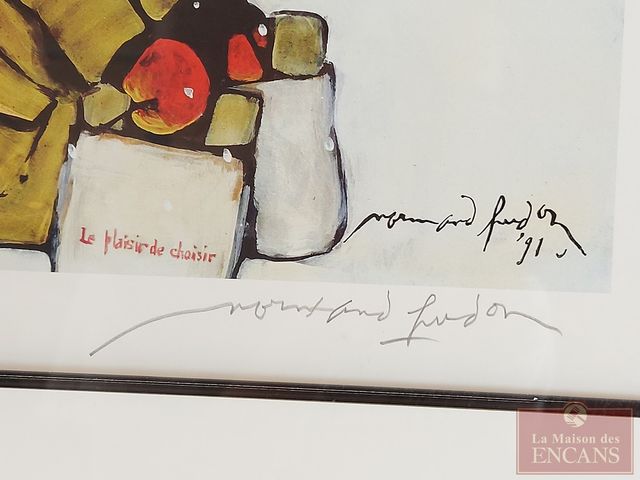 Le plaisir de choisir
normand hudon
'91
normand hudon
La Maison des
ENCANS